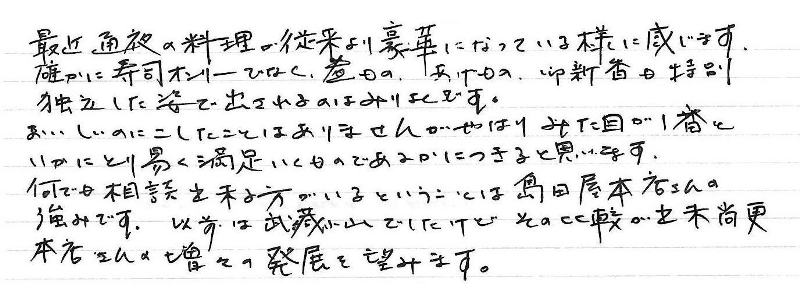 最近通夜の料理が従来より豪華になっている様に感じます。
確かに寿司オンリーでなく、煮もの、あげもの、御新香も特別
独立した姿で出されるのはみりょくです。
おいしいのにこしたことはありませんがやはりみた目が1番と
いかにとり易く満足いくものであるかにつきると思います。
何でも相談出来る方がいるということは島田屋本店さんの
強みです。以前は武蔵小山でしたけどその比較が出来尚更
本店さんの増々の発展を望みます。